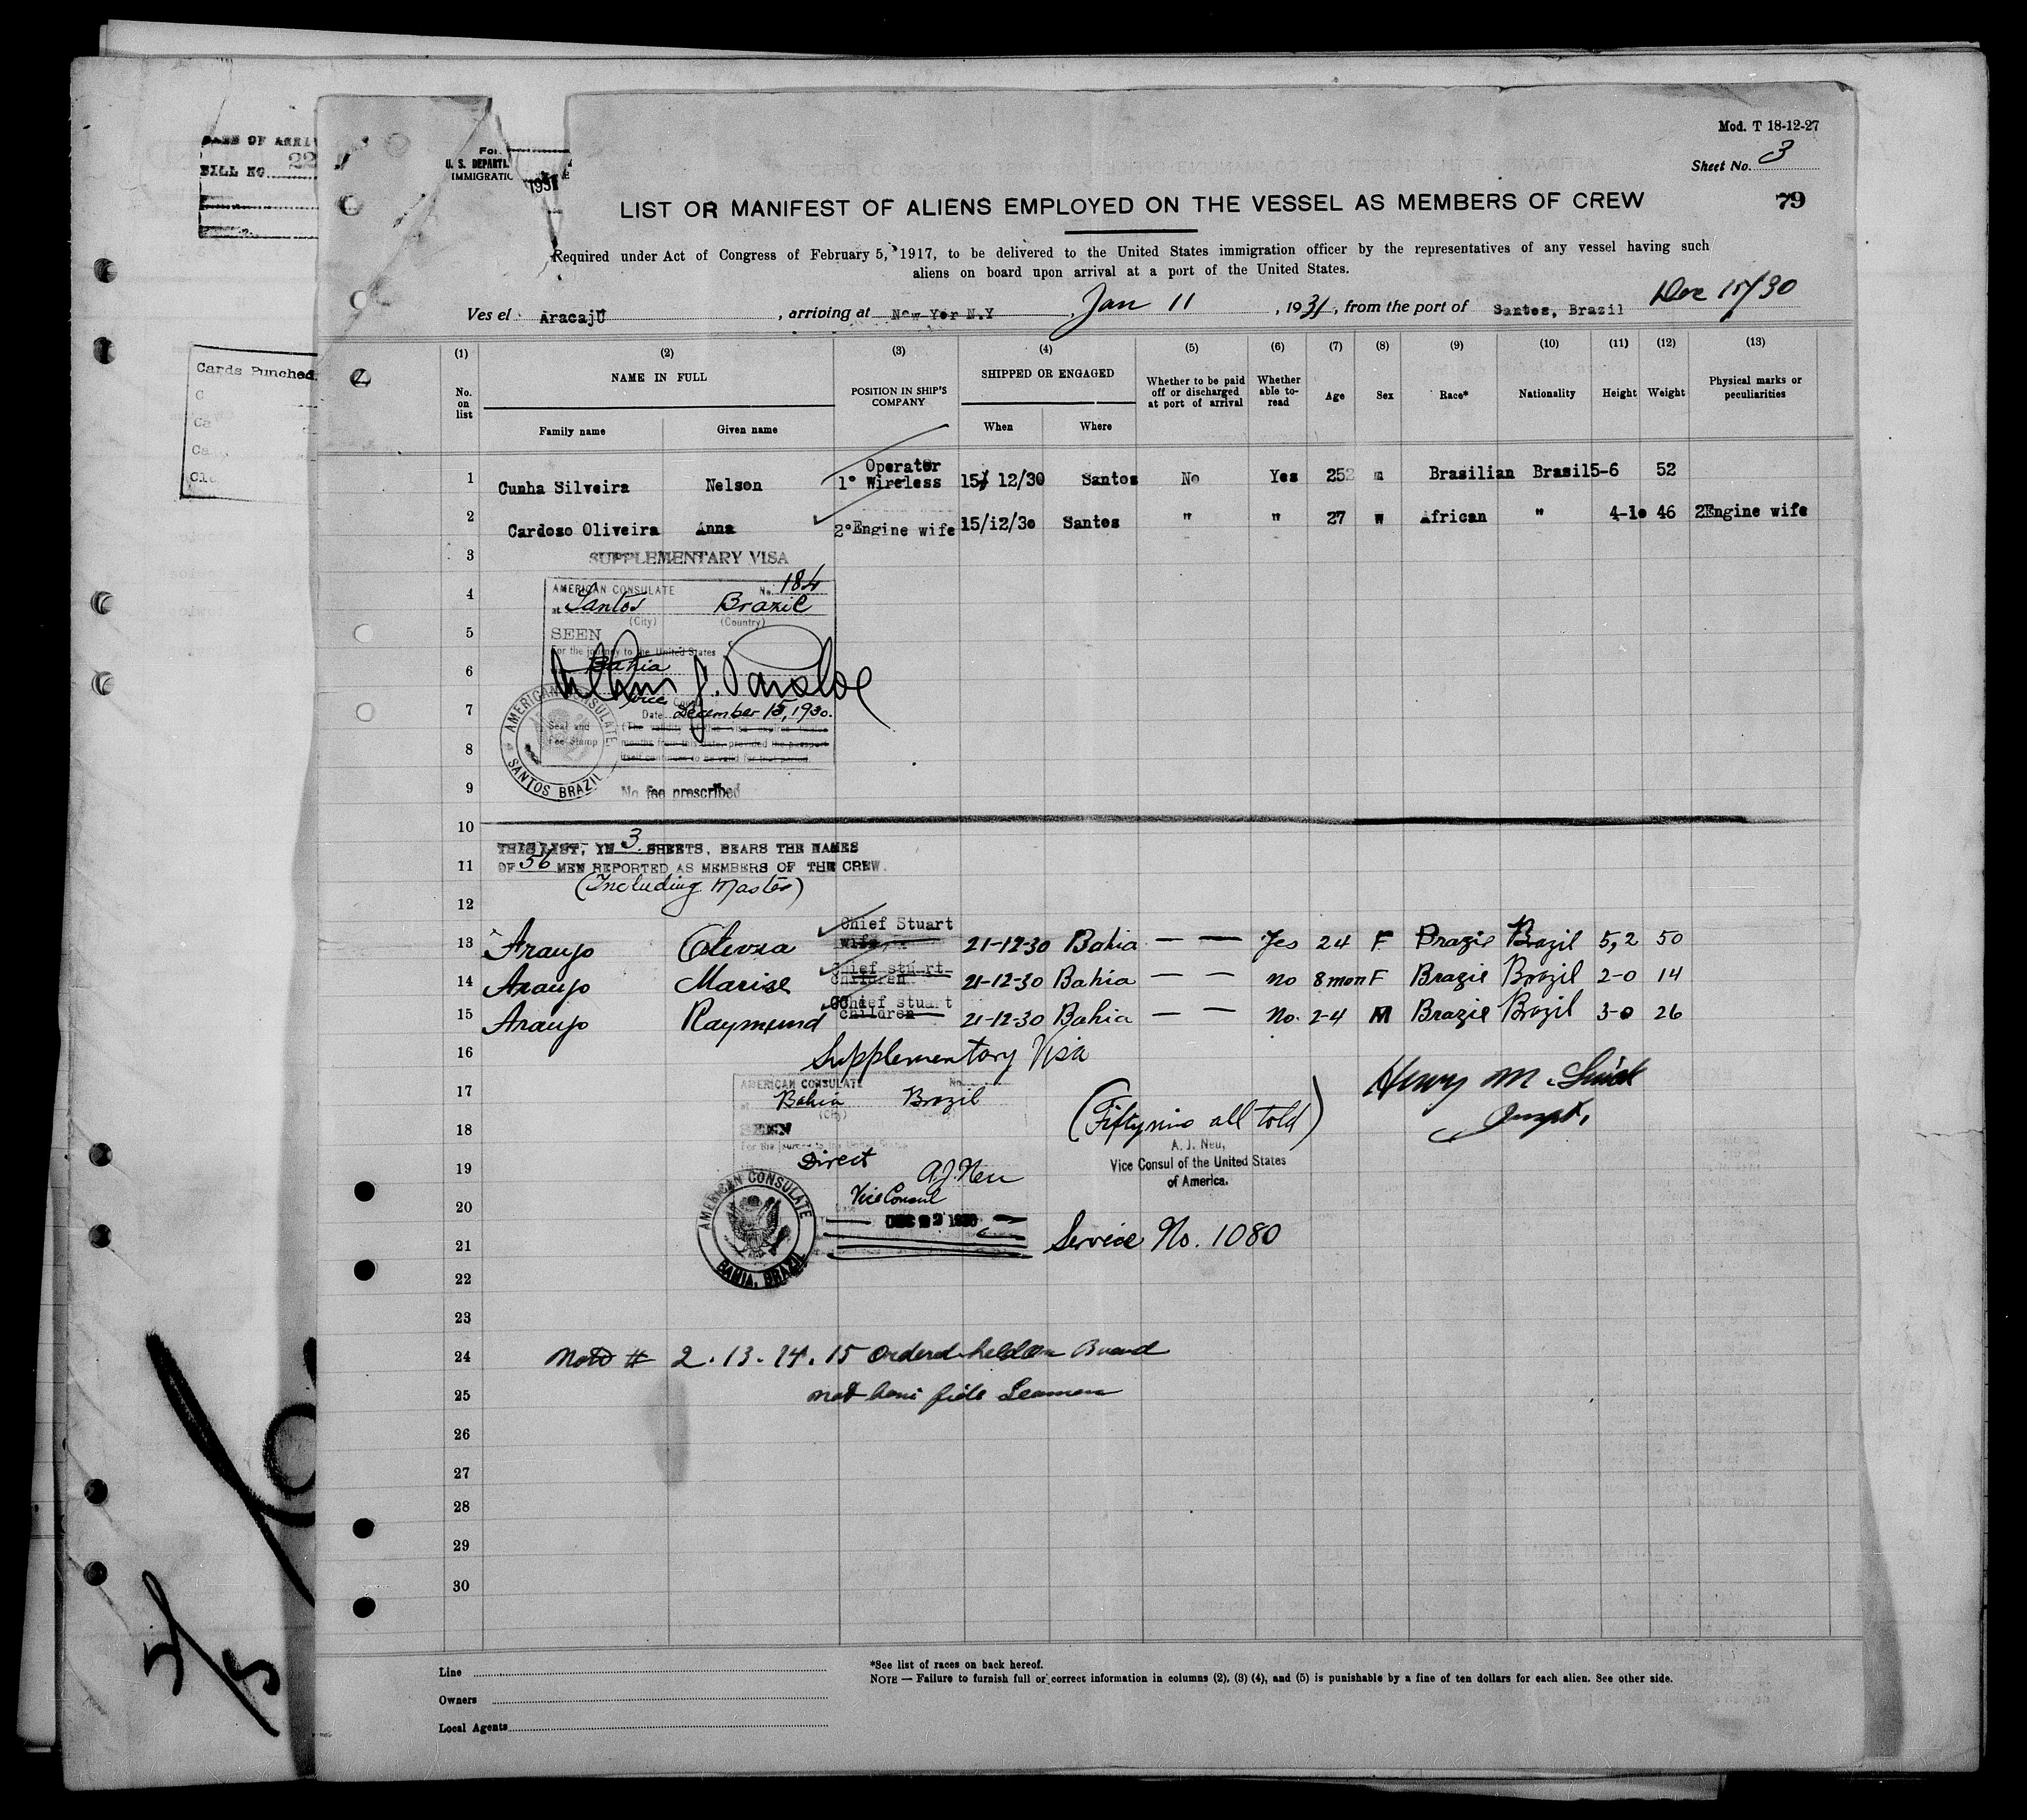 Mod. T 18-12-27
Sheet No. 3
79
For
U. S. DEPARTM
IMMIGRATIO
1931
BILL NO 22
Cards Punched
LIST OR MANIFEST OF ALIENS EMPLOYED ON THE VESSEL AS MEMBERS OF CREW
Required under Act of Congress of February 5, 1917, to be delivered to the United States immigration officer by the representatives of any vessel having such
aliens on board upon arrival at a port of the United States.
Ves el Aracajú, arriving at New Yor N.Y, Jan 11, 1931, from the port of Santos, Brazil Dec 15/30
(1) (2) (3) (4) (5) (6) (7) (8) (9) (10) (11) (12) (13)
No. on list NAME IN FULL POSITION IN SHIP'S COMPANY SHIPPED OR ENGAGED Whether to be paid off or discharged at port of arrival Whether able to- read Age Sex Race* Nationality Height Weight Physical marks or peculiarities
Family name Given name When Where
1 Cunha Silveira Nelson 1° Operator Wireless 15/12/30 Santos No Yes 252 m Brasilian Brasil 5-6 52
2 Cardoso Oliveira Anna 2° Engine wife 15/i2/3o Santos " " 27 w African " 4-1o 46 2Engine wife
3 SUPPLEMENTARY VISA
4 AMERICAN CONSULATE No. 184
at Santos Brazil
(City) (Country)
5 SEEN
For the journey to the United States
6 Bahia
Vice Consul
7 Date December 15, 1930.
Seal and Fee Stamp
(The validity of this visa expires twelve
8 months from this date, provided the passport
itself continues to be valid for that period.
AMERICAN CONSULATE SANTOS BRAZIL
9 No fee prescribed
10
THIS LIST, IN 3 SHEETS, BEARS THE NAMES
11 OF 56 MEN REPORTED AS MEMBERS OF THE CREW.
(Including Master)
12
13 Araujo Chief Stuart wife 21-12-30 Bahia — — Yes 24 F Brazil Brazil 5,2 50
14 Araujo Marise Chief stuart children 21-12-30 Bahia — — no 8 mon F Brazil Brazil 2-0 14
15 Araujo Raymund Chief stuart children 21-12-30 Bahia — — No. 2-4 M Brazil Brazil 3-0 26
16 Supplementary Visa
17 AMERICAN CONSULATE No.
Bahia Brazil
(City)
Henry M.
18 SEEN
(Fiftynine all told)
For the journey to the United States
A. J. Neu,
19 Direct A.J. Neu
Vice Consul of the United States
of America.
Vice Consul
20 DEC 22 1930
21 Service No. 1080
AMERICAN CONSULATE BAHIA, BRAZIL
22
23
24 Note # 2. 13. 14. 15 ordered held on Board
25 not boni fide Seamen
26
27
28
29
30
5/5
Line
Owners
Local Agents
*See list of races on back hereof.
NOTE — Failure to furnish full or correct information in columns (2), (3) (4), and (5) is punishable by a fine of ten dollars for each alien. See other side.